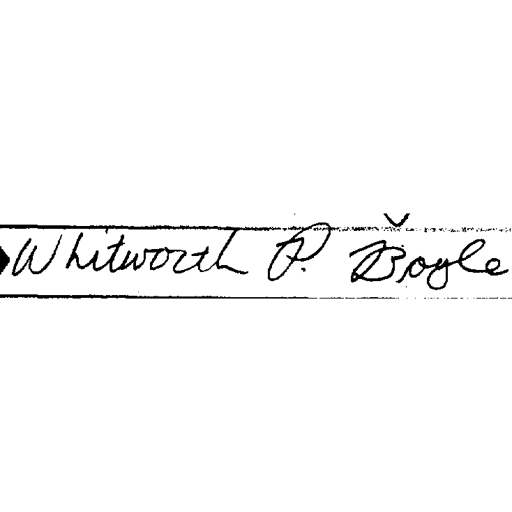 Whitworth P. Boyle